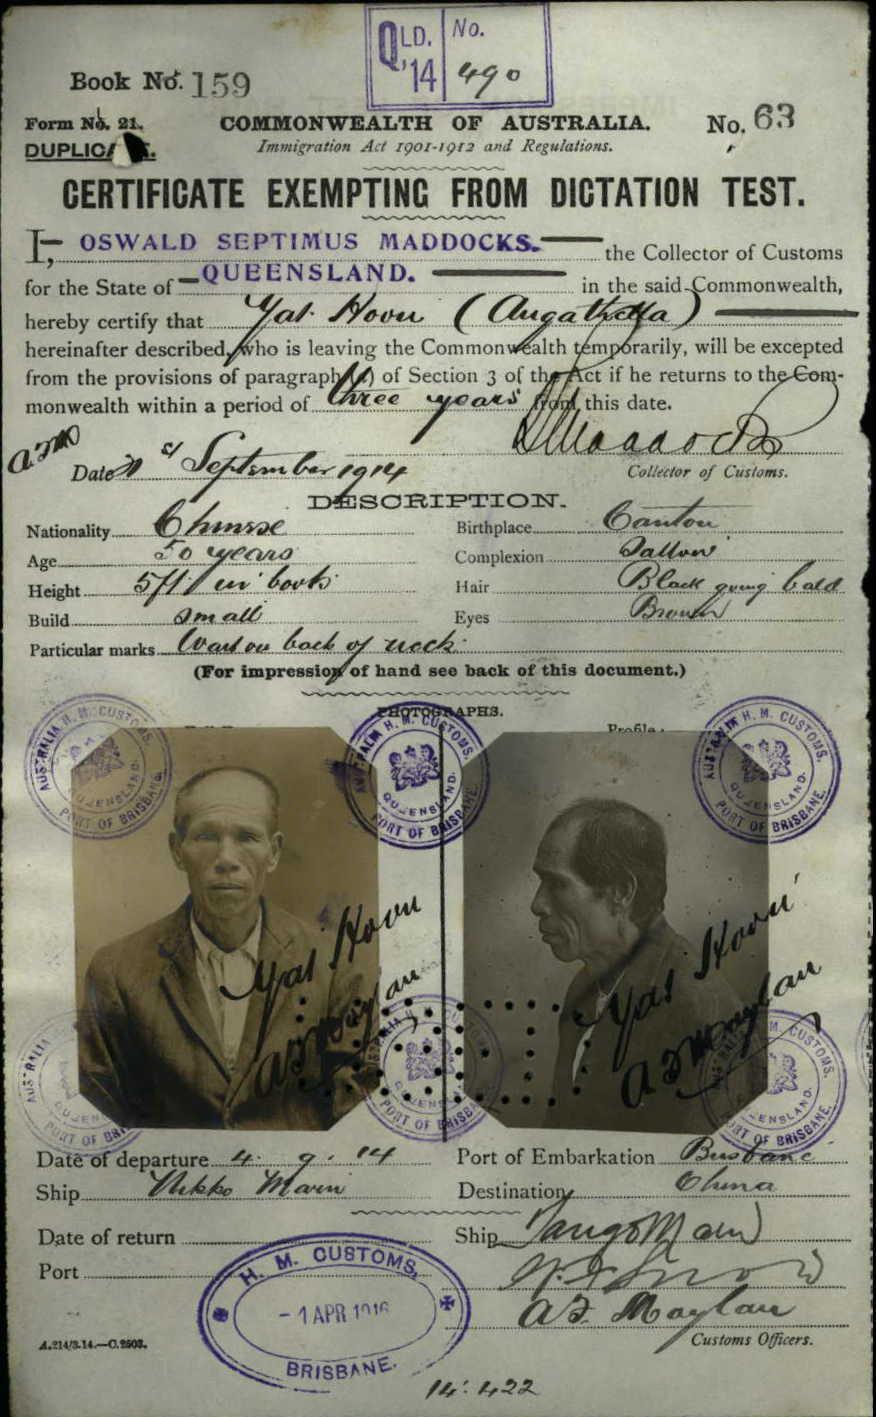 QLD. No.
'14 490
Book No. 159
Form No. 21. COMMONWEALTH OF AUSTRALIA. No. 63
DUPLICATE. Immigration Act 1901-1912 and Regulations.
CERTIFICATE EXEMPTING FROM DICTATION TEST.
I, OSWALD SEPTIMUS MADDOCKS. the Collector of Customs
for the State of QUEENSLAND. in the said Commonwealth,
hereby certify that Yat Hoon (Augathella)
hereinafter described, who is leaving the Commonwealth temporarily, will be excepted
from the provisions of paragraph (a) of Section 3 of the Act if he returns to the Com-
monwealth within a period of three years from this date.
OSMaddocks
Date 1st September 1914 Collector of Customs.
DESCRIPTION.
Nationality Chinese Birthplace Canton
Age 50 years Complexion Sallow
Height 5ft 1 in boots Hair Black going bald
Build small Eyes Brown
Particular marks Wart on back of neck
(For impression of hand see back of this document.)
PHOTOGRAPHS.
Profile:
AUSTRALIA H. M. CUSTOMS. QUEENSLAND. PORT OF BRISBANE.
AUSTRALIA H. M. CUSTOMS. QUEENSLAND. PORT OF BRISBANE.
AUSTRALIA H. M. CUSTOMS. QUEENSLAND. PORT OF BRISBANE.
Yat Hoon Yat Hoon
A F Moylan A F Moylan
Date of departure 4. 9. 14 Port of Embarkation Brisbane
Ship Nikko Maru Destination China
Date of return Ship Tango Maru
Port
A F Moylan
Customs Officers.
H. M. CUSTOMS,
- 1 APR 1916
BRISBANE.
A.214/3.14.—C.2503.
14.422